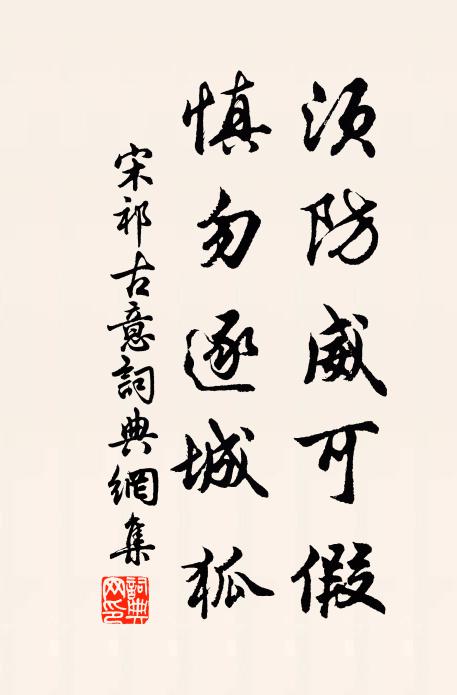 須防威可假
慎勿逐城狐
宋祁古意詞典網集
詞典網印